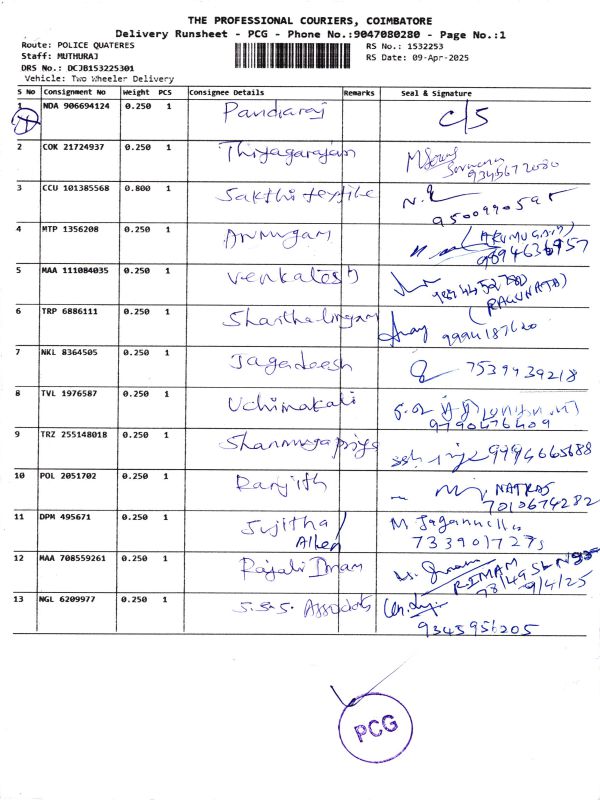 THE PROFESSIONAL COURIERS, COIMBATORE
Delivery Runsheet - PCG - Phone No.:9047080280 - Page No.:1
Route: POLICE QUATERES
RS No.: 1532253
Staff: MUTHURAJ
RS Date: 09-Apr-2025
DRS No.: DCJB153225301
Vehicle: Two Wheeler Delivery
S No Consignment No Weight PCS Consignee Details Remarks Seal & Signature
1 NDA 906694124 0.250 1 Pandiaraj C/S
2 COK 21724937 0.250 1 Thiyagarajan
9345672080
3 CCU 101385568 0.800 1 Sakthi textile
9500990595
4 MTP 1356208 0.250 1 Arumugam (ARUMUGAM)
9894636957
5 MAA 111084035 0.250 1 Venkatesh
(RAGUNATH)
6 TRP 6886111 0.250 1 Sharthalingam
9994187620
7 NKL 8364505 0.250 1 Jagadeesh 7539439218
8 TVL 1976587 0.250 1 Uchimakali
9790476409
9 TRZ 255148018 0.250 1 Shanmugapriya 9994665688
10 POL 2051702 0.250 1 Ranjith NATRAJ
7010674282
11 DPM 495671 0.250 1 Sujitha M
Allen
12 MAA 708559261 0.250 1 Rajali Imam
R.IMAM
9/4/25
13 NGL 6209977 0.250 1 S.S.S. Associates
9345956205
PCG